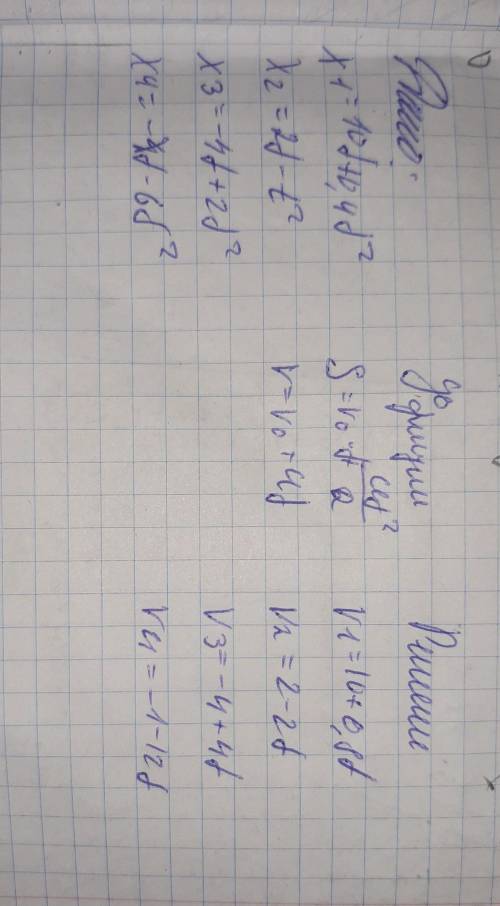 Дано:
x1=10t+0,4t²
x2=2t-t²
x3=-4t+2t²
x4=-t-6t²
формулы
S=v0·t+at²/2
v=v0+at
Решение
V1=10+0,8t
V2=2-2t
V3=-4+4t
V4=-1-12t